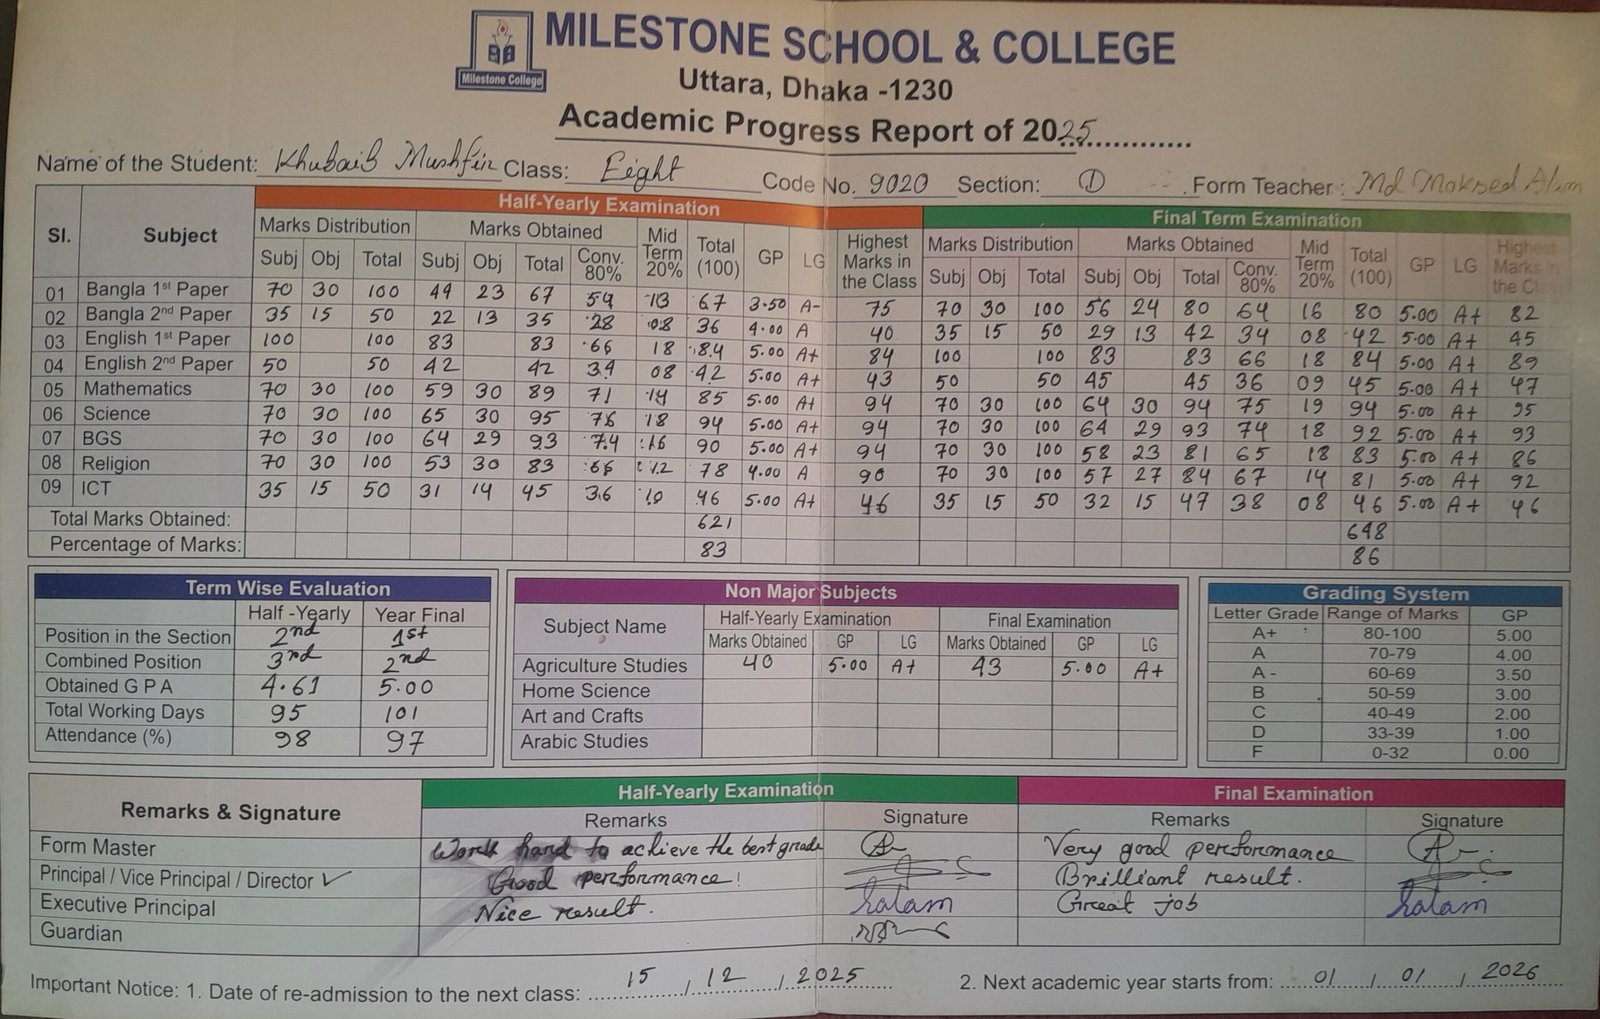 MILESTONE SCHOOL & COLLEGE
Milestone College
Uttara, Dhaka -1230
Academic Progress Report of 2025
Name of the Student: Khubaib Mushfin Class: Eight Code No. 9020 Section: D Form Teacher: Md Moksed Alam
Half-Yearly Examination Final Term Examination
Sl. Subject Marks Distribution Marks Obtained Mid Term 20% Total (100) GP LG Highest Marks in the Class Marks Distribution Marks Obtained Mid Term 20% Total (100) GP LG Highest Marks in the Class
Subj Obj Total Subj Obj Total Conv. 80% Subj Obj Total Subj Obj Total Conv. 80%
01 Bangla 1st Paper 70 30 100 44 23 67 54 13 67 3.50 A- 75 70 30 100 56 24 80 64 16 80 5.00 A+ 82
02 Bangla 2nd Paper 35 15 50 22 13 35 28 08 36 4.00 A 40 35 15 50 29 13 42 34 08 42 5.00 A+ 45
03 English 1st Paper 100 100 83 83 66 18 84 5.00 A+ 84 100 100 83 83 66 18 84 5.00 A+ 89
04 English 2nd Paper 50 50 42 42 34 08 42 5.00 A+ 43 50 50 45 45 36 09 45 5.00 A+ 47
05 Mathematics 70 30 100 59 30 89 71 14 85 5.00 A+ 94 70 30 100 64 30 94 75 19 94 5.00 A+ 95
06 Science 70 30 100 65 30 95 76 18 94 5.00 A+ 94 70 30 100 64 29 93 74 18 92 5.00 A+ 93
07 BGS 70 30 100 64 29 93 74 16 90 5.00 A+ 94 70 30 100 58 23 81 65 18 83 5.00 A+ 86
08 Religion 70 30 100 53 30 83 66 12 78 4.00 A 90 70 30 100 57 27 84 67 14 81 5.00 A+ 92
09 ICT 35 15 50 31 14 45 36 10 46 5.00 A+ 46 35 15 50 32 15 47 38 08 46 5.00 A+ 46
Total Marks Obtained: 621 648
Percentage of Marks: 83 86
Term Wise Evaluation
Half -Yearly Year Final
Position in the Section 2nd 1st
Combined Position 3rd 2nd
Obtained G P A 4.61 5.00
Total Working Days 95 101
Attendance (%) 98 97
Non Major Subjects
Subject Name Half-Yearly Examination Final Examination
Marks Obtained GP LG Marks Obtained GP LG
Agriculture Studies 40 5.00 A+ 43 5.00 A+
Home Science
Art and Crafts
Arabic Studies
Grading System
Letter Grade Range of Marks GP
A+ 80-100 5.00
A 70-79 4.00
A - 60-69 3.50
B 50-59 3.00
C 40-49 2.00
D 33-39 1.00
F 0-32 0.00
Remarks & Signature Half-Yearly Examination Final Examination
Remarks Signature Remarks Signature
Form Master Work hard to achieve the best grade Very good performance
Principal / Vice Principal / Director ✓ Good performance! Brilliant result.
Executive Principal Nice result. Salam Great job Salam
Guardian
Important Notice: 1. Date of re-admission to the next class: 15 / 12 / 2025 2. Next academic year starts from: 01 / 01 / 2026